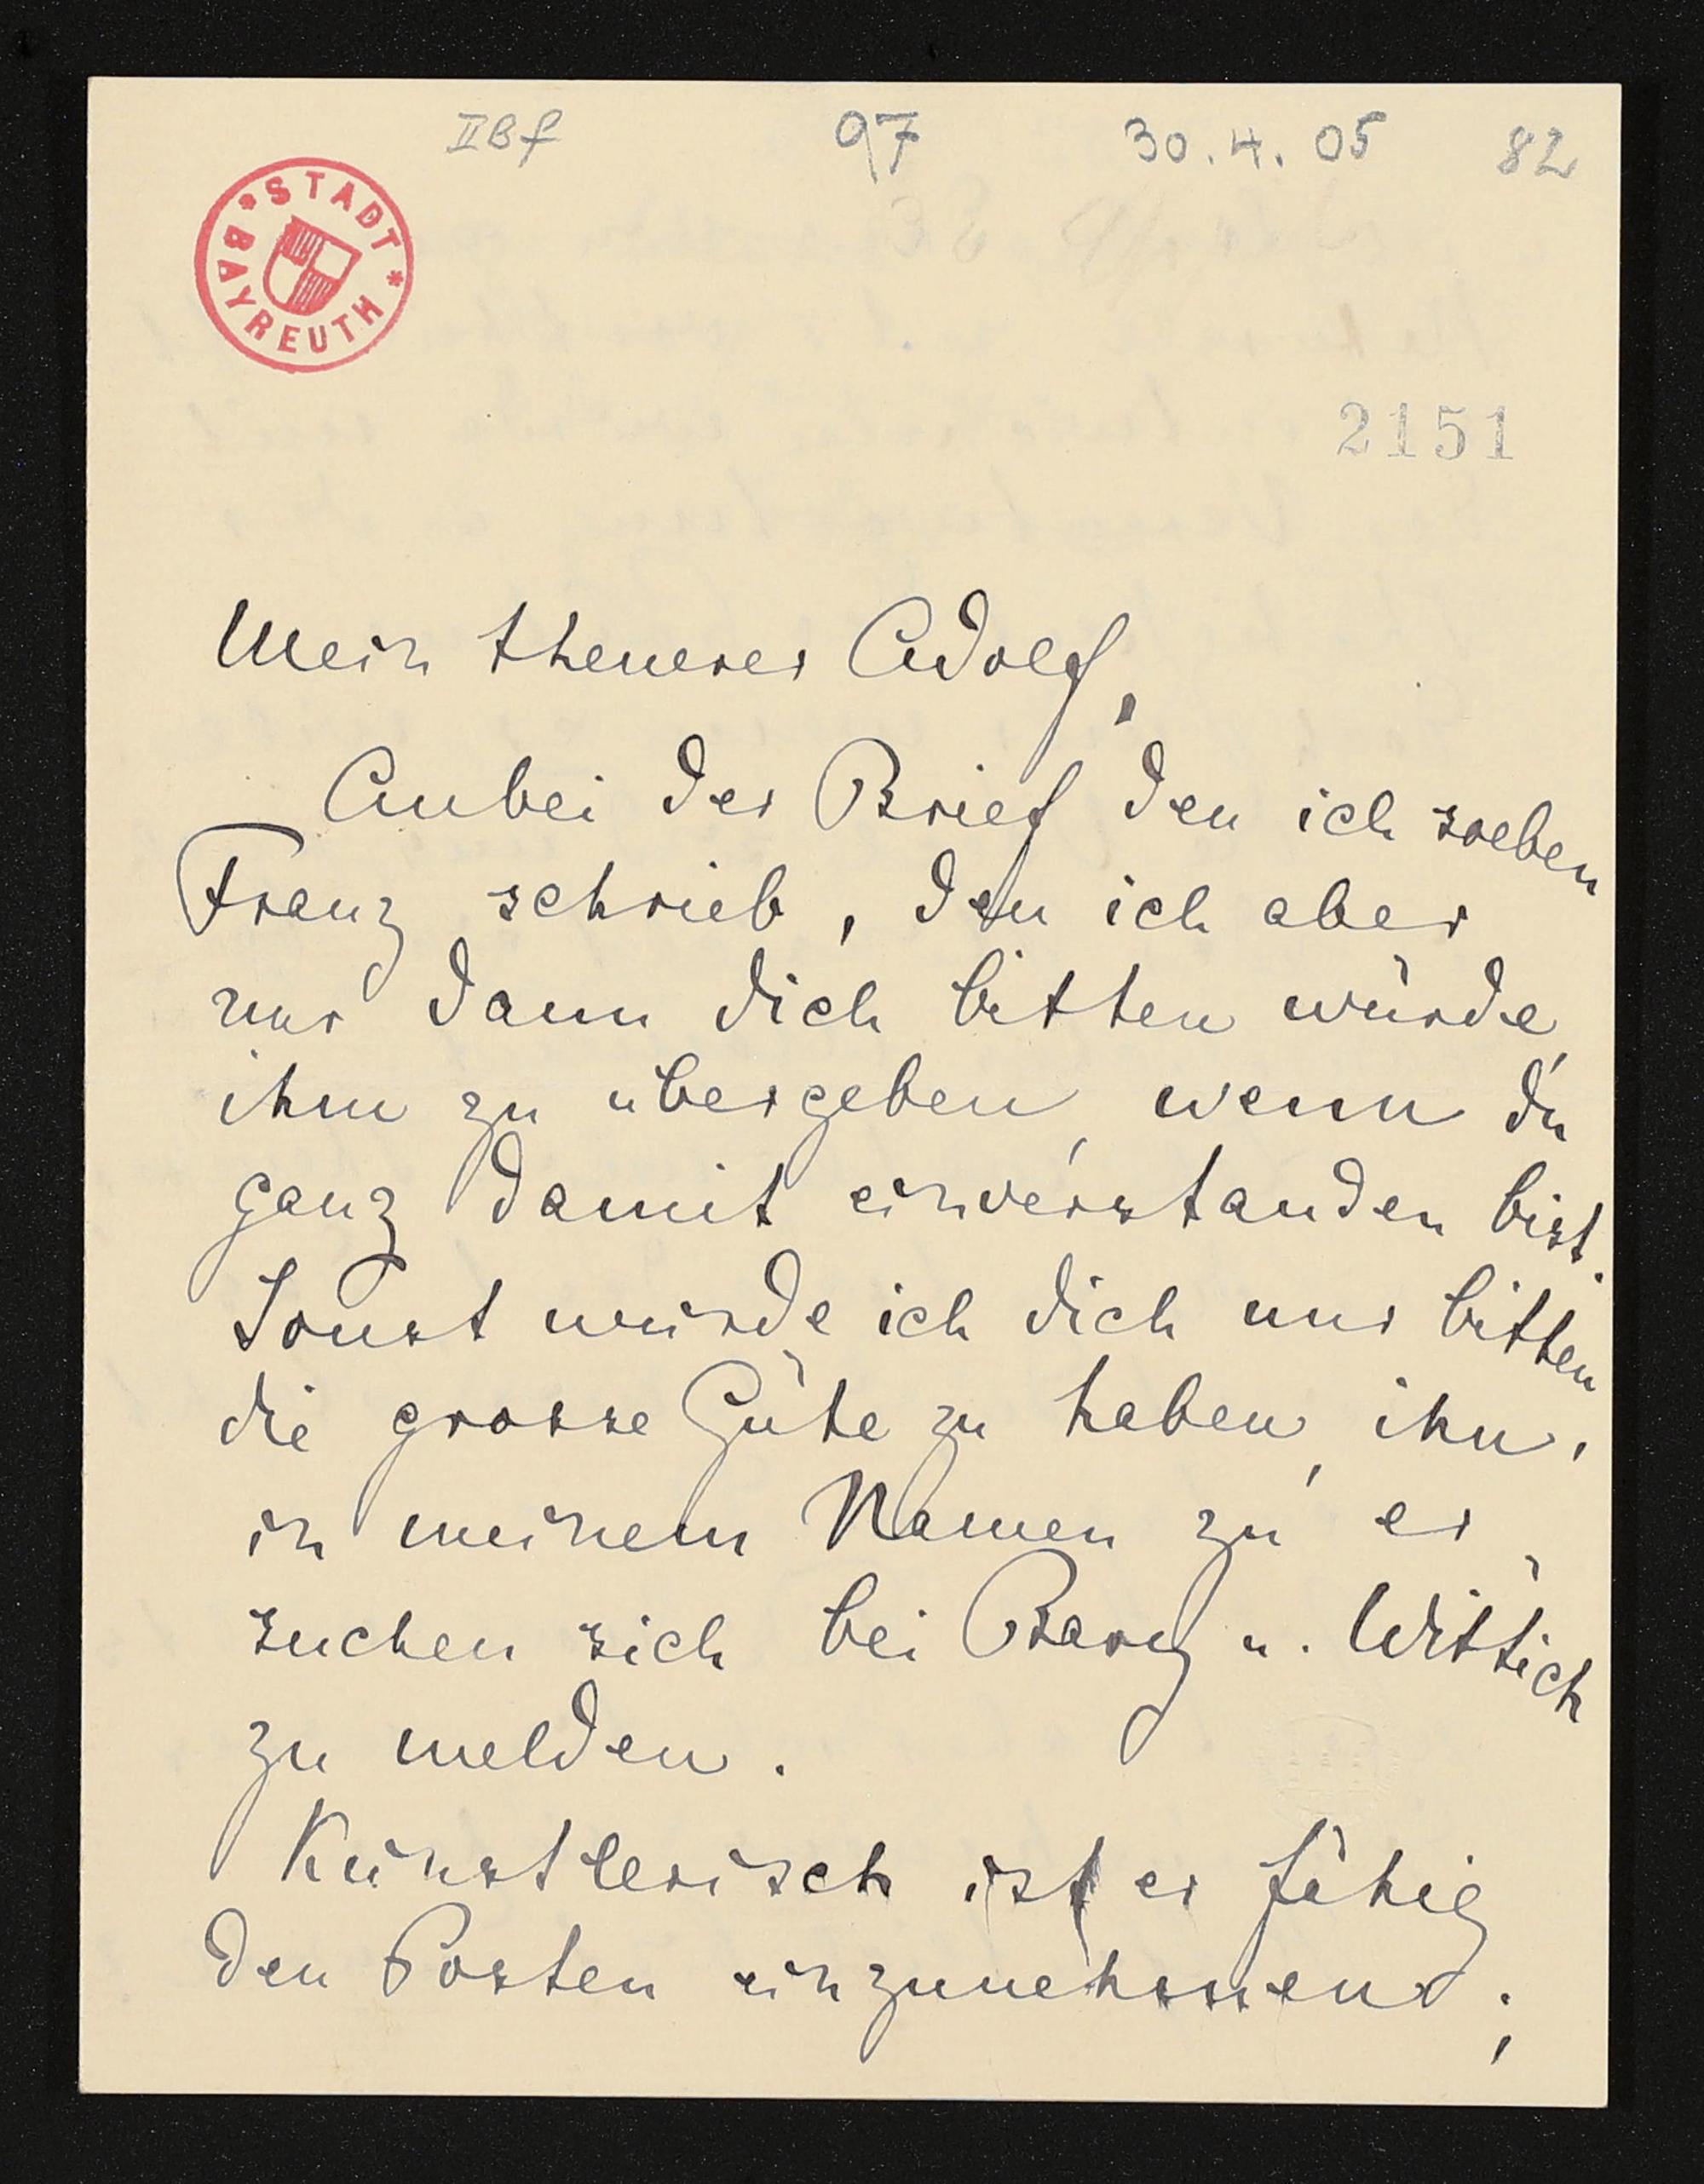 IIBf 97 30.4.05 82
STADT BAYREUTH
2151
Mein theuerer Adolf,
Anbei der Brief den ich soeben
Franz schrieb, den ich aber
nur dann dich bitten würde,
ihm zu übergeben, wenn du
ganz damit einverstanden bist.
Sonst würde ich dich nur bitten
die grosse Güte zu haben, ihn,
in meinem Namen zu er
suchen sich bei Bary u. Wittich
zu melden.
Künstlerisch ist er fähig
den Posten einzunehmen;